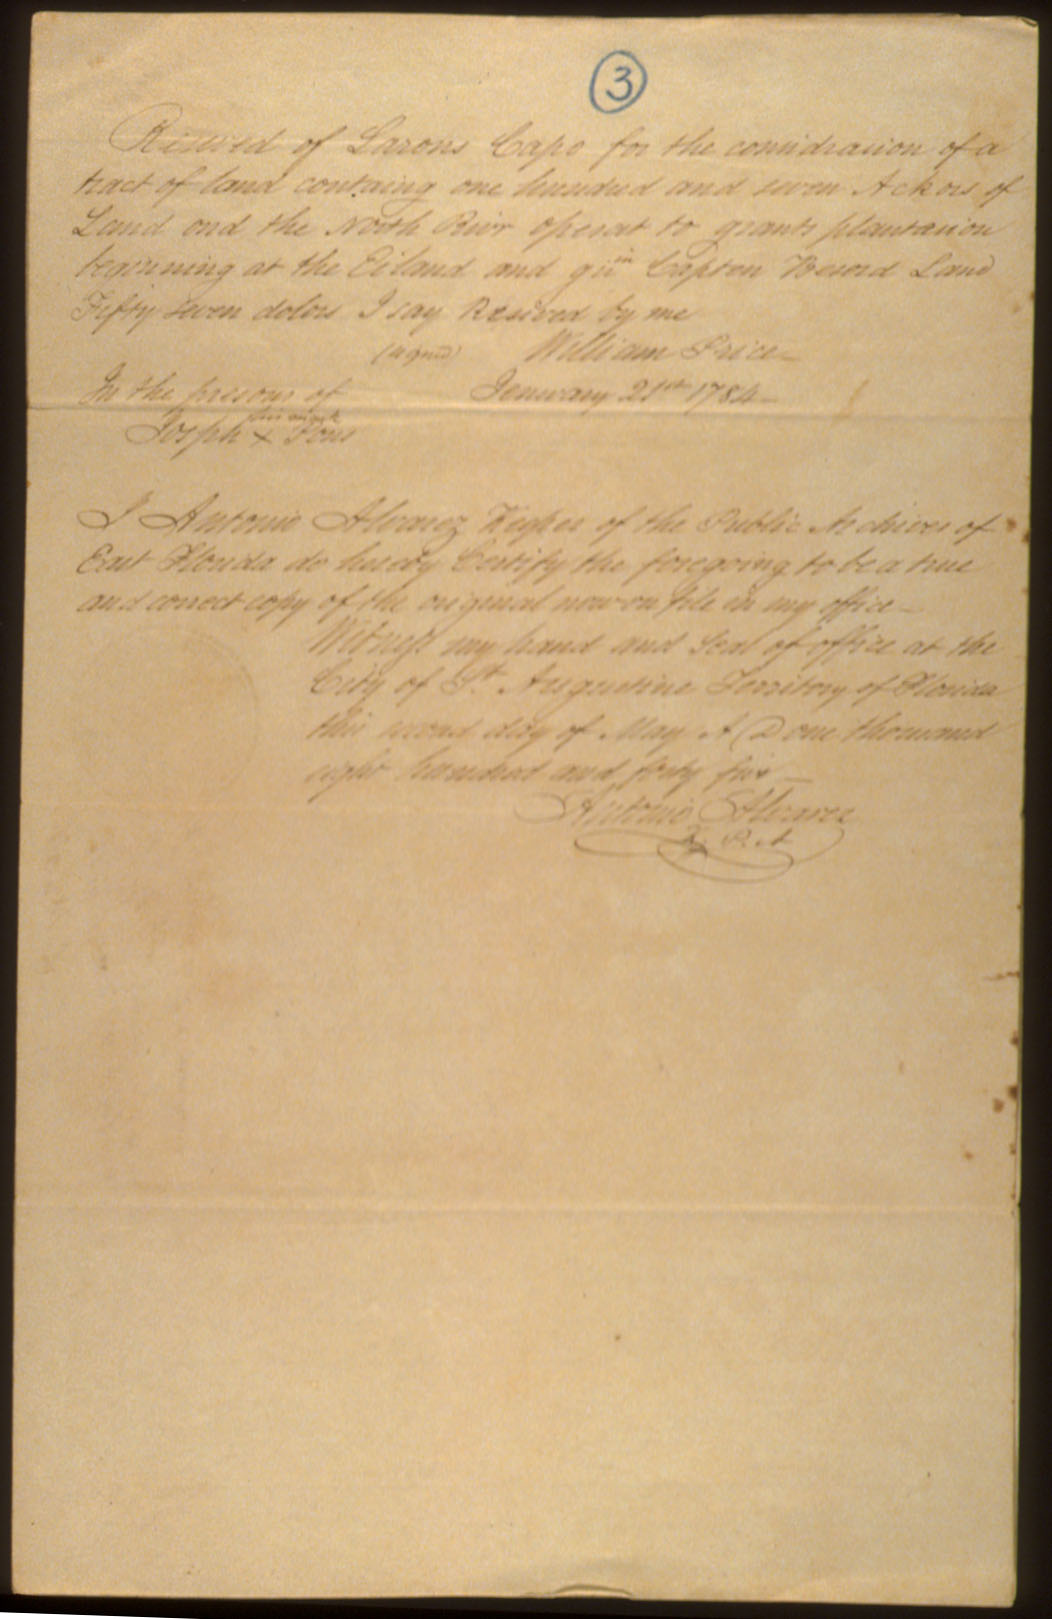 3
Resived of Larons Capo for the considrasion of a
tract of land containg one hundred and seven Ackors of
Land ond the North River oposat to grants plantasion
beginning at the Eiland and in Capton Land
Fifty seven dolors I say Resived by me
(signed) William Price
In the presons of Jenuary 21st 1784
his mark
Joseph x Pons
I Antonio Alvarez Keeper of the Public Archives of
East Florida do hereby Certify the foregoing to be a true
and correct copy of the original now on file in my office
Witness my hand and Seal of office at the
City of St. Augustine Territory of Florida
this second day of May A D one thousand
eight hundred and forty five
Antonio Alvarez
K. P. A